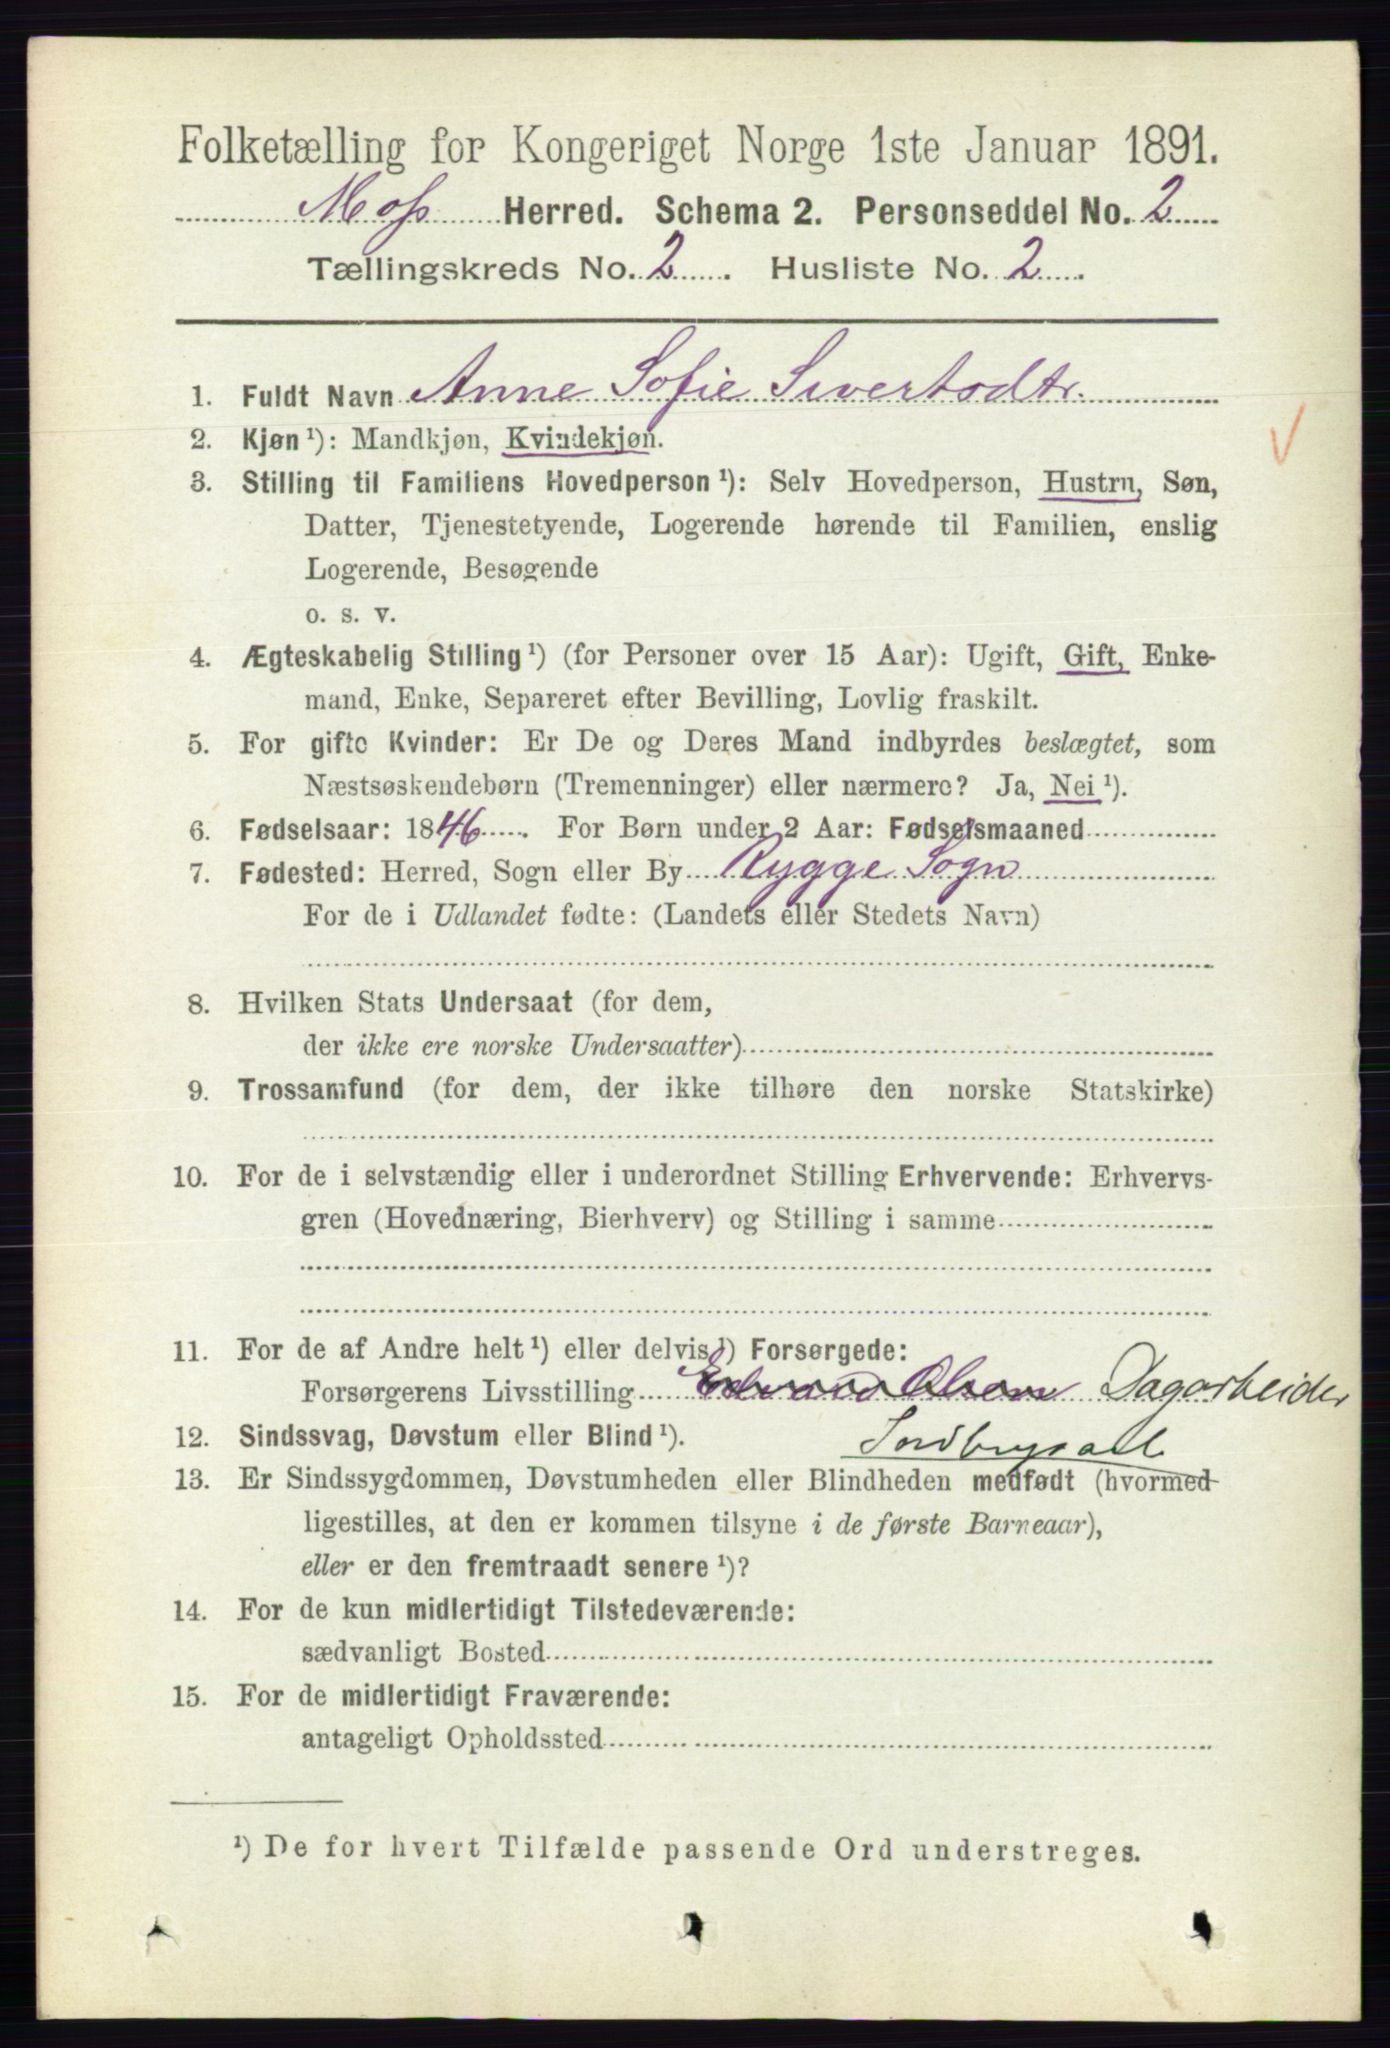 Folketælling for Kongeriget Norge 1ste Januar 1891.
Moss Herred. Schema 2. Personseddel No. 2
Tællingskreds No. 2. Husliste No. 2.
1. Fuldt Navn Anne Sofie Sivertsdtr.
2. Kjøn ¹): Mandkjøn, Kvindekjøn.
3. Stilling til Familiens Hovedperson ¹): Selv Hovedperson, Hustru, Søn,
Datter, Tjenestetyende, Logerende hørende til Familien, enslig
Logerende, Besøgende
o. s. v.
4. Ægteskabelig Stilling ¹) (for Personer over 15 Aar): Ugift, Gift, Enke-
mand, Enke, Separeret efter Bevilling, Lovlig fraskilt.
5. For gifte Kvinder: Er De og Deres Mand indbyrdes beslægtet, som
Næstsøskendebørn (Tremenninger) eller nærmere? Ja, Nei ¹).
6. Fødselsaar: 1846. For Børn under 2 Aar: Fødselsmaaned
7. Fødested: Herred, Sogn eller By Rygge Sogn
For de i Udlandet fødte: (Landets eller Stedets Navn)
8. Hvilken Stats Undersaat (for dem,
der ikke ere norske Undersaatter)
9. Trossamfund (for dem, der ikke tilhøre den norske Statskirke)
10. For de i selvstændig eller i underordnet Stilling Erhvervende: Erhvervs-
gren (Hovednæring, Bierhverv) og Stilling i samme
11. For de af Andre helt ¹) eller delvis ¹) Forsørgede:
Forsørgerens Livsstilling Edvard Olsen Dagarbeider
Jordbrugsarb
12. Sindssvag, Døvstum eller Blind ¹).
13. Er Sindssygdommen, Døvstumheden eller Blindheden medfødt (hvormed-
ligestilles, at den er kommen tilsyne i de første Barneaar),
eller er den fremtraadt senere ¹)?
14. For de kun midlertidigt Tilstedeværende:
sædvanligt Bosted
15. For de midlertidigt Fraværende:
antageligt Opholdssted
¹) De for hvert Tilfælde passende Ord understreges.